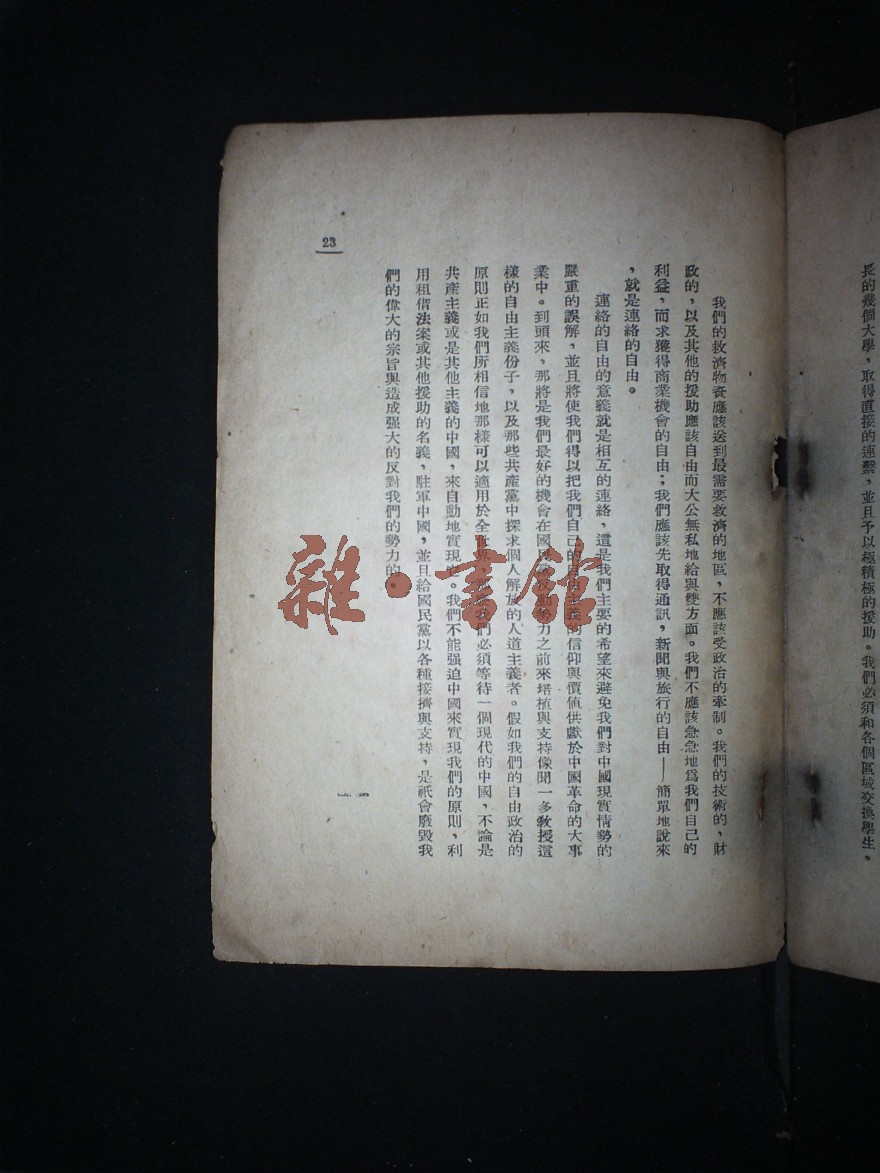 長的幾個大學，取得直接的連繫，並且予以極積極的援助。我們必須和各個區域交換學生。
我們的救濟物資應該送到最需要救濟的地區，不應該受政治的牽制。我們的技術的，財
政的，以及其他的援助應該自由而大公無私地給與雙方面。我們不應該急急地爲我們自己的
利益，而求獲得商業機會的自由；我們應該先取得通訊，新聞與旅行的自由——簡單地說來
，就是連絡的自由。
連絡的自由的意義就是相互的連絡，這是我們主要的希望來避免我們對中國現實情勢的
嚴重的誤解，並且將使我們得以把我們自己的自由主義的信仰與價値供獻於中國革命的大事
業中。到頭來，那將是我們最好的機會在國民黨反動勢力之前來培植與支持像聞一多敎授這
樣的自由主義份子，以及那些共產黨中探求個人解放的人道主義者。假如我們的自由政治的
原則正如我們所相信地那樣可以適用於全世界，那我們必須等待一個現代的中國，不論是
共產主義或是其他主義的中國，來自動地實現它。我們不能强迫中國來實現我們的原則，利
用租借法案或其他援助的名義，駐軍中國，並且給國民黨以各種接濟與支持，是祇會廢毀我
們的偉大的宗旨與造成强大的反對我們的勢力的。
23
雜·書館